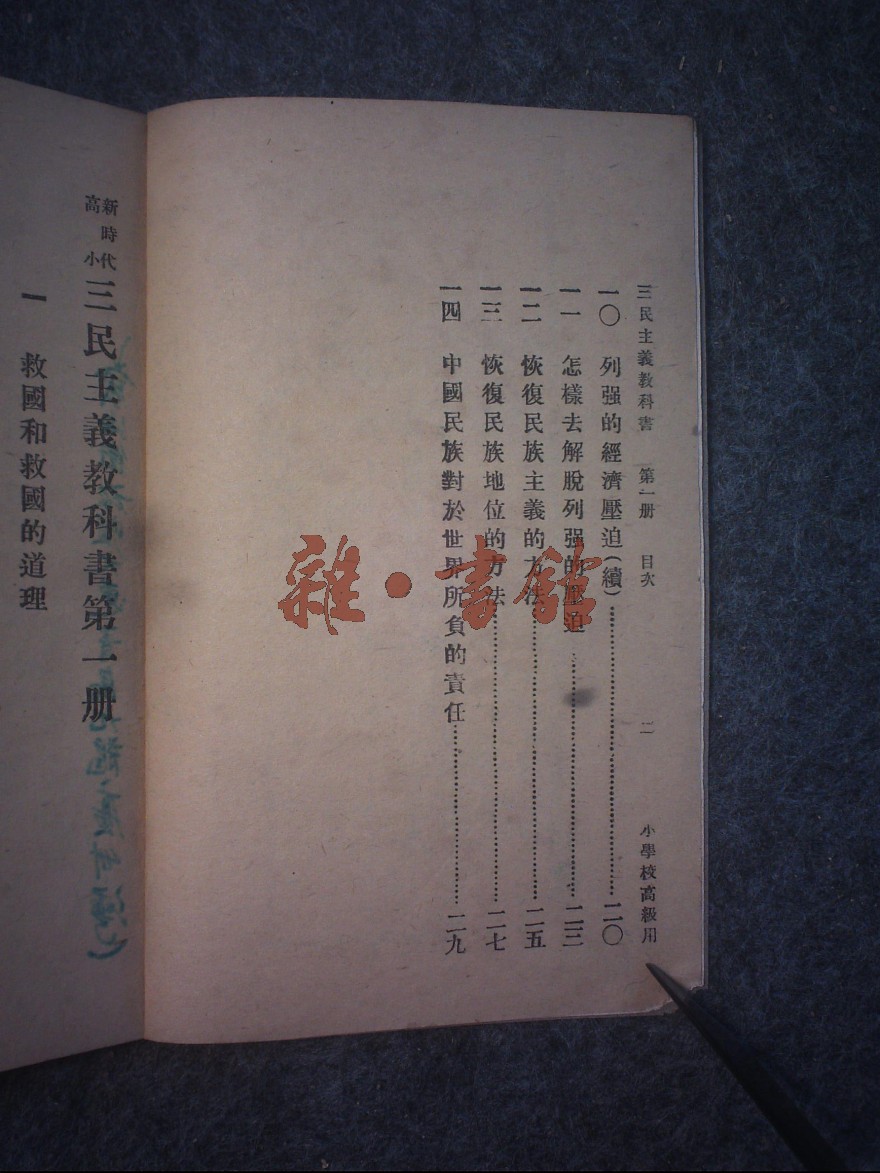 三民主義教科書 第一册 目次 二 小學校高級用
一〇 列强的經濟壓迫(續)……二〇
一一 怎樣去解脫列强的壓迫……二三
一二 恢復民族主義的方法……二五
一三 恢復民族地位的方法……二七
一四 中國民族對於世界所負的責任……二九
雜·書館
新時代
高小
三民主義教科書第一册
一 救國和救國的道理